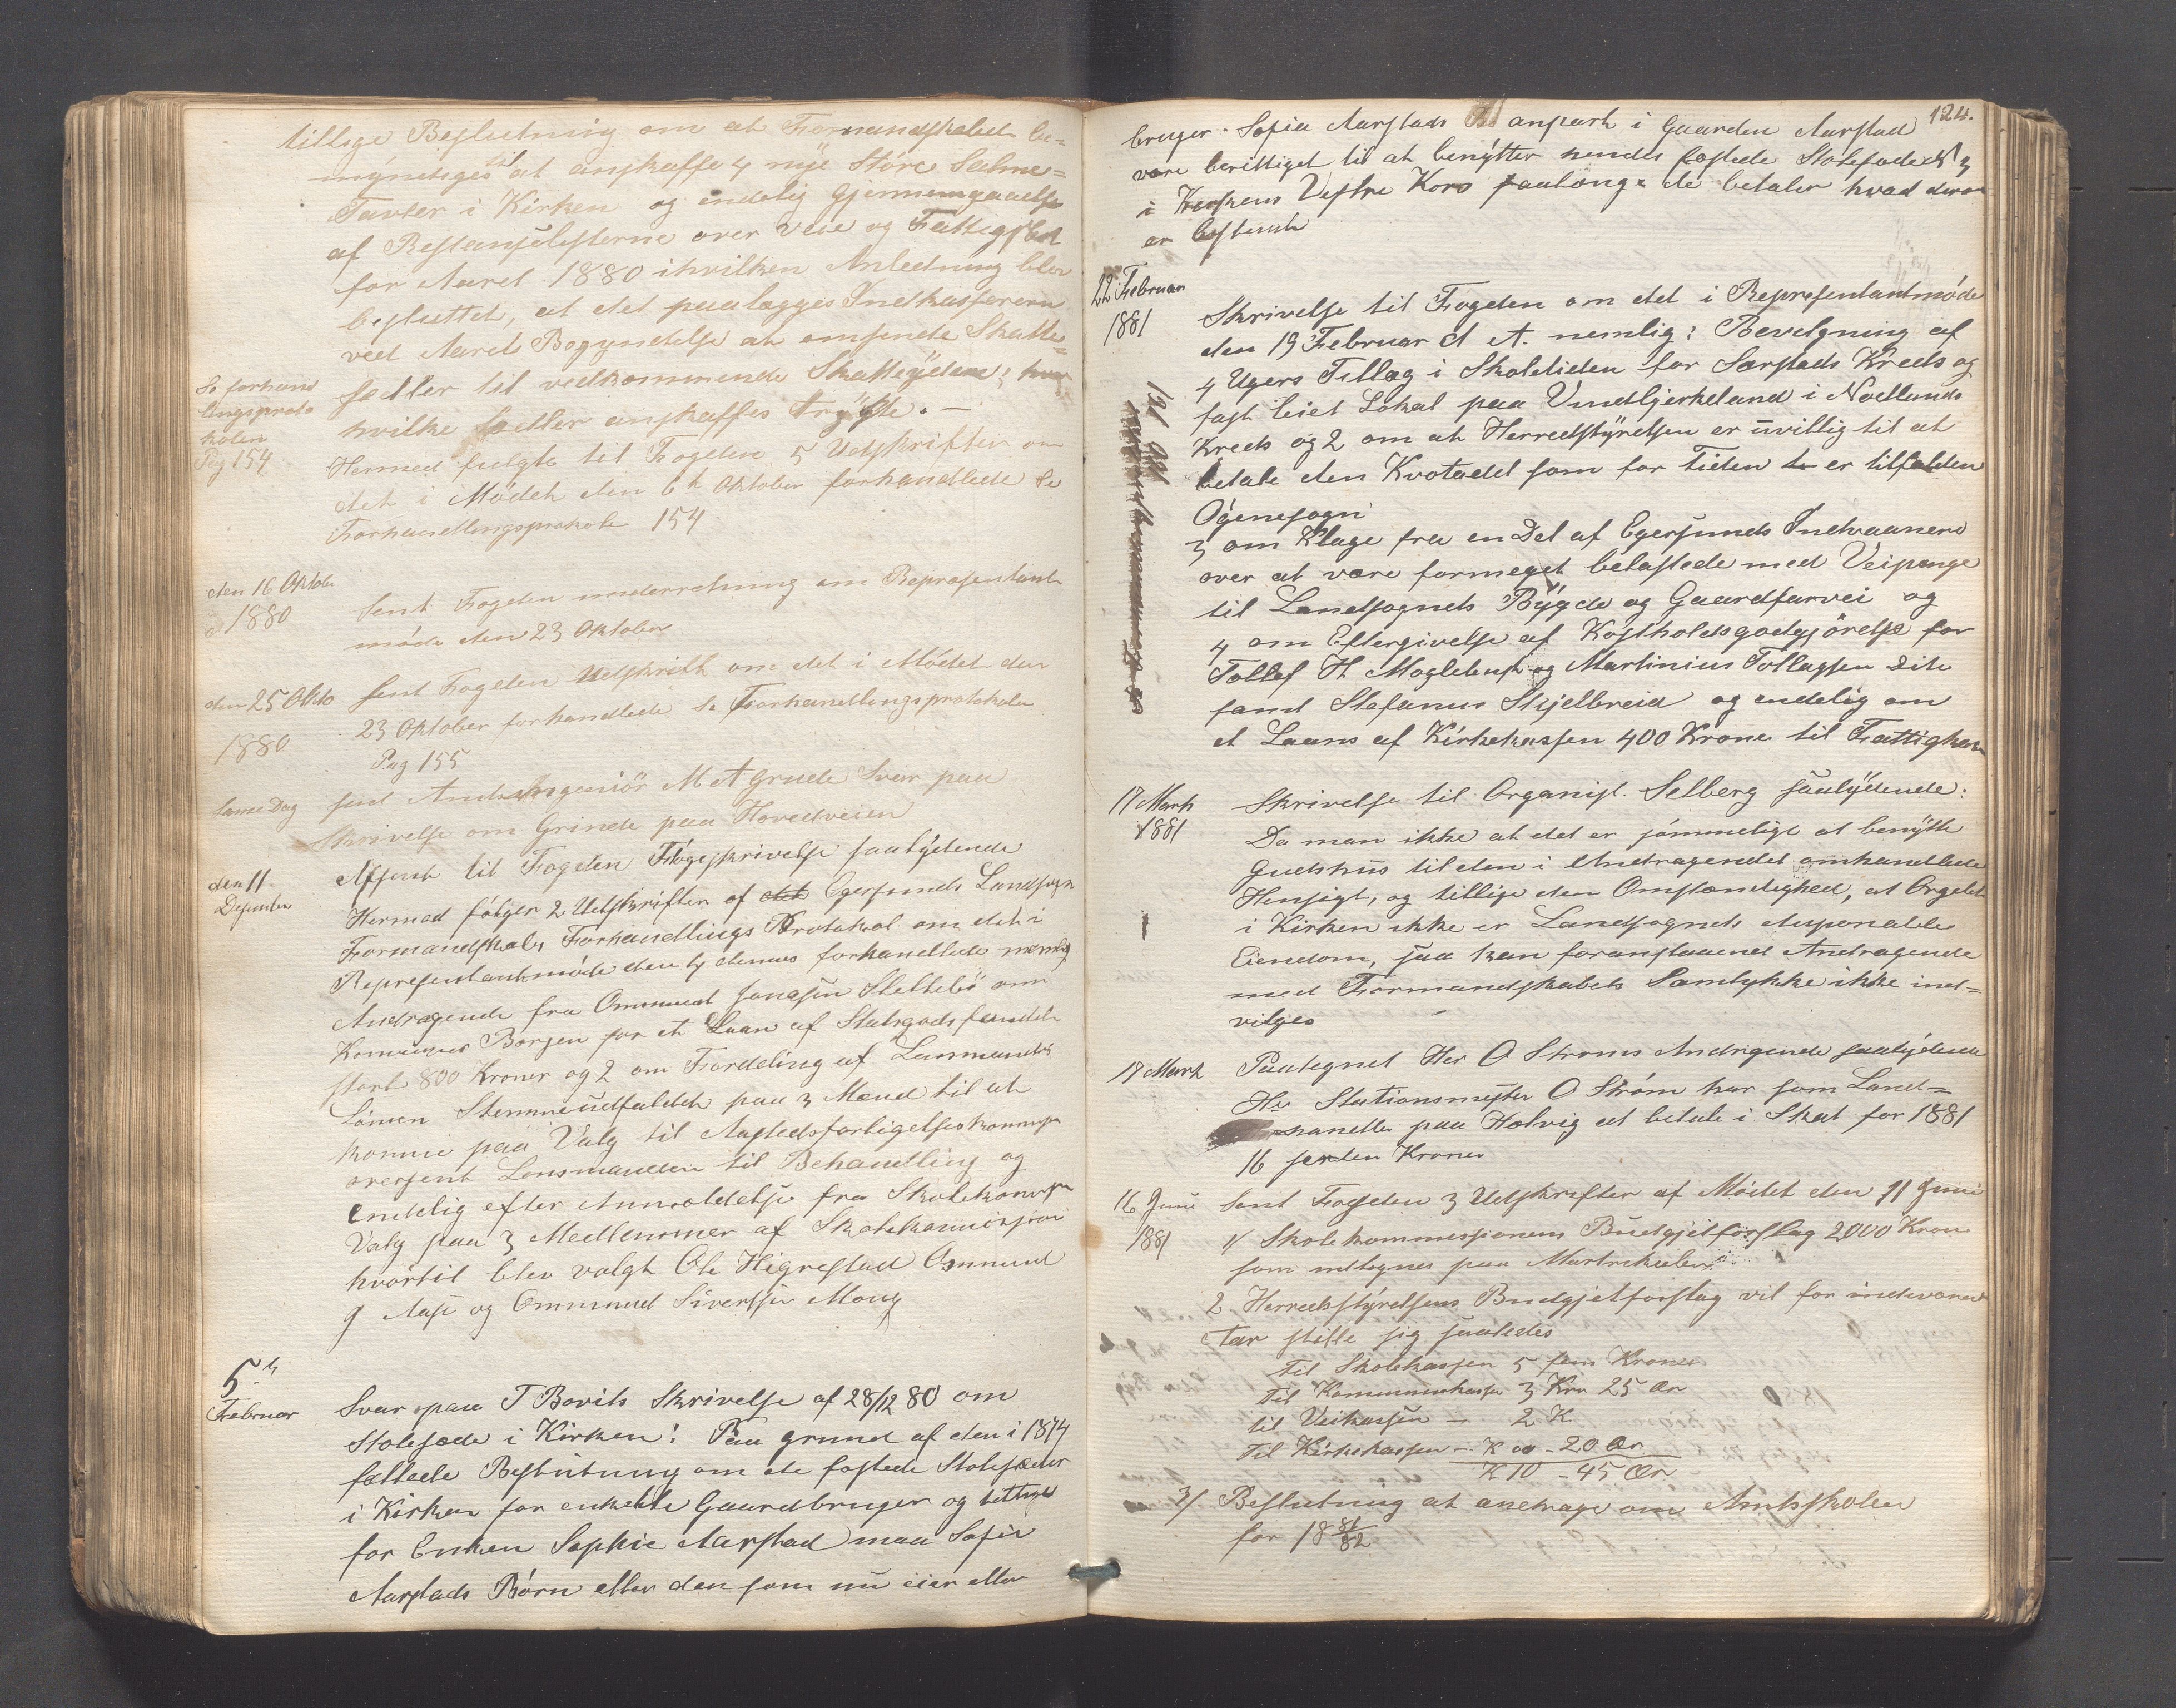 tillige Beslutning om at Formandskabet be=
myndiges til at anskaffe 4 nye Större Salme=
Tavler i Kirken og endelig Gjennemgaaelse
af Restanselisterne over Veie og Fattigskat
for Aaret 1880 i hvilken Anledning blev
besluttet, at det paalægges Indkassereren
ved Aarets Begyndelse at omsende Skatte=
sedler til vedkommende Skatteydere;
hvilke sedler anskaffes trygte. —
Se forhand
lingsproto
kolen
Pag 154
Hermed fulgte til Fogden 5 Udskrifter om
det i Mödet den 6te Oktober forhandlede Se
Forhandlingsprotokole 154
den 16 Oktobe
1880
Sent Fogden underretning om Representant
möde den 23 Oktober
den 25 Okto
1880
Sent Fogden Udskrift om det i Mödet den
23 Oktober forhandlede Se Forhandlingsprotokolen
Pag 155
Same Dag
send Amtsingeniör M A Grude Svar paa
Skrivelse om Grinde paa Hovedveien
den 11
Desember
Afsent til Fogden Fölgeskrivelse saalydende
Hermed fölger 2 Udskrifter af det Egersunds Landsogn
Formandskabs Forhandlings Protokol om det i
Representantmöde den 4 dennes forhandlede nemlig
Andragende fra Ommund Jonasen Slettebö om
Komunens Borgen for et Laan af Statsgodsfondet
stort 800 Kroner og 2 om Fordeling af Lensmands
Lönen Stemmeudfaldet paa 3 Mænd til at
komme paa Valg til Aastedsforligelseskommis
oversent Lensmanden til Behandling og
endelig efter Anmeldelse fra Skolekomis
Valg paa 3 Medlemmer af Skolekommissjon
hvortil blev valgt Ole Higrestad Osmund
J Aase og Ommund Sivertsen Mong
5te
Februar
Svar paa T Bovits Skrivelse af 28/12 80 om
Stolesæde i Kirken: Paa grund af den i 1874
fattede Beslutning om de fæstede Stolesæder
i Kirken for enkelte Gaardbruger og tillige
for Enken Sophie Aarstad maa Sofie
Aarstads Börn eller den som nu eier eller
124.
bruger Sofia Aarstads anpart i Gaarden Aarstad
være berittiget til at benytter hendes fæstede Stolesæde № 3
i Kirkens Vestre Kors saalænge de betaler hvad derom
er bestemt
22 Februar
1881
Skrivelse til Fogden om det i Represendantmöde
den 19 Februar d A. nemlig: Bevelgning af
4 Ugers Tillæg i Skoletiden for Sørstads Kreds og
fast leiet Lokal paa Vindbjerkeland i Nodlunds
Kreds og 2 om at Herredstyrelsen er uvillig til at
betale den Kvotadel som for Tiden er tilfalden
Ögnesogn
3 om Klage fra en Del af Egersunds Indvaanere
over at være formeget belastede med Veipenge
til Landsognets Bygde og Gaardfarvei og
4 om Eftergivelse af Kostholdsgodtgjörelse for
Tollef H. Mogletvet og Martinius Tollagsen Dito
samt Stefanus Skjelbreid og endelig om
et Laans af Kirkekassen 400 Krone til Fattigkas
17 Marts
1881
Skrivelse til Organist. Selberg saalydende:
Da man ikke at det er sömmeligt at benytte
Gudshus til den i Andragendet omhandlede
Hensigt, og tillige den Omstændighed, at Orgelet
i Kirken ikke er Landsognets disponable
Eiendom, saa kan foranstaaend Andragende
med Formandskabets Samtykke ikke ind=
vilges
17 Marts
Paategnet Her O Ströms Andragende saalydende
Hr Stationsmester O Ström har som Land=
handler paa Helvig at betale i Skat for 1881
16 sexten Kroner
16 Juni
1881
Sent Fogden 3 Udskrifter af Mödet den 11 Juni
1/ Skolekommissjonens Budgjetforslag 2000 Kron
som udlegnes paa Martrikulen
2 Herredsstyrelsens Budgjetforslag vil for indeværend
Aar stille sig saaledes
Til Skolekassen 5 fem Kroner
Til Kommunekasse 3 Kro 25 Ör
til Veikassen — 2 K
Til Kirkekassen — K 00 - 20 Ör
K 10 - 45 Ör
3/ Beslutning at andrage om Amtsskolen
for 18 81/82